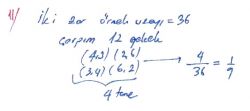 11/ İki zar örnek uzayı = 36
çarpım 12 gelecek
(4,3) (2,6) → 4/36 = 1/9
(3,4) (6,2)
4 tane